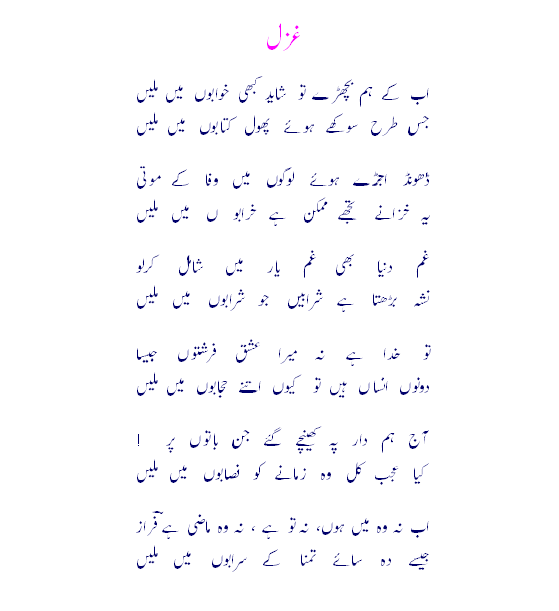 غزل
اب کے ہم بچھڑے تو شاید کبھی خوابوں میں ملیں
جس طرح سوکھے ہوئے پھول کتابوں میں ملیں
ڈھونڈ اجڑے ہوئے لوگوں میں وفا کے موتی
یہ خزانے تجھے ممکن ہے خرابو ں میں ملیں
غم دنیا بھی غم یار میں شامل کرلو
نشہ بڑھتا ہے شرابیں جو شرابوں میں ملیں
تو خدا ہے نہ میرا عشق فرشتوں جیسا
دونوں انساں ہیں تو کیوں اتنے حجابوں میں ملیں
آج ہم دار پہ کھینچے گئے جن باتوں پر !
کیا عجب کل وہ زمانے کو نصابوں میں ملیں
اب نہ وہ میں ہوں، نہ تو ہے ، نہ وہ ماضی ہے فراز
جیسے دہ سائے تمنا کے سرابوں میں ملیں